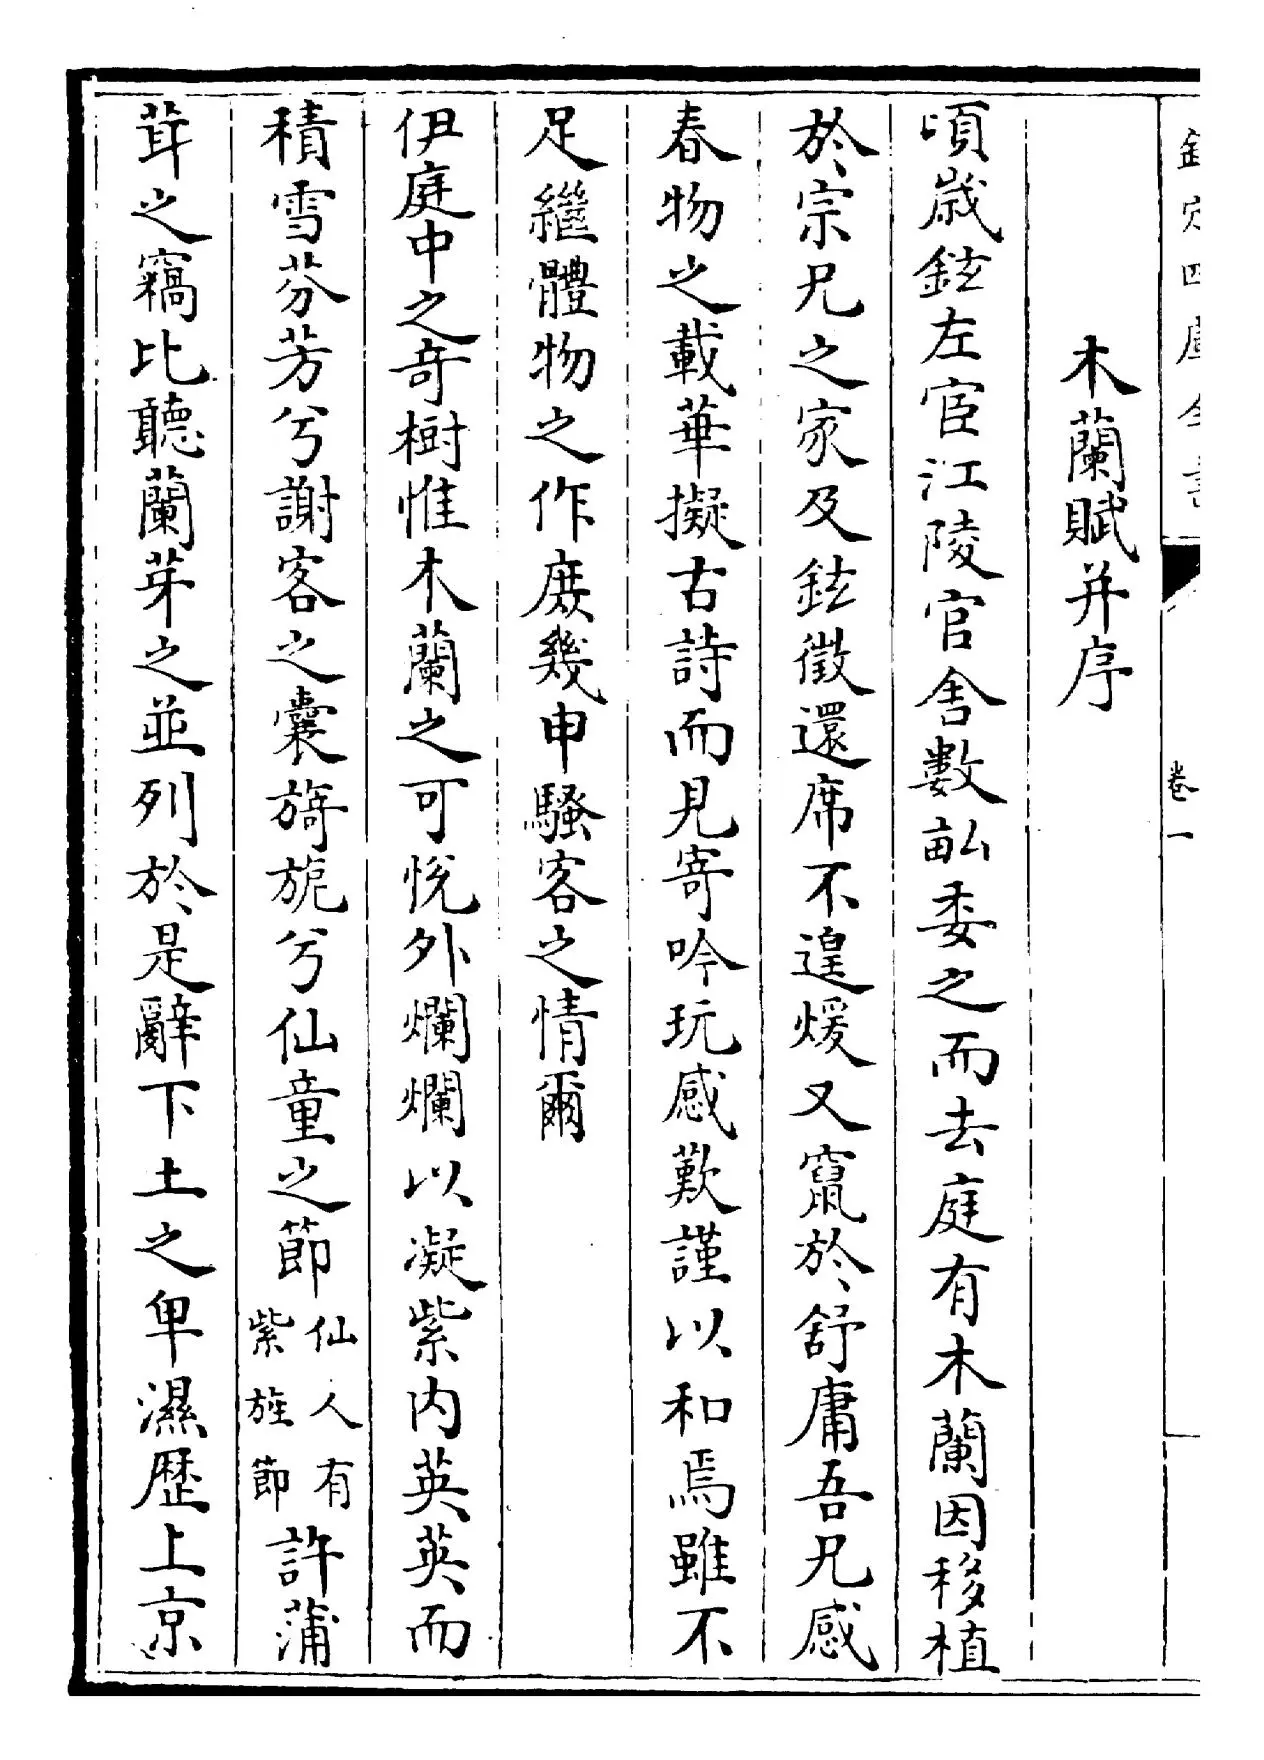 欽定四庫全書
卷一
木蘭賦并序
頃歲鉉左宦江陵官舍數畝委之而去庭有木蘭因移植
於宗兄之家及鉉徵還席不遑煖又竄於舒庸吾兄感
春物之載華擬古詩而見寄吟玩感歎謹以和焉雖不
足繼體物之作庶幾申騷客之情爾
伊庭中之竒樹惟木蘭之可悅外爛爛以凝紫内英英而
積雪芬芳兮謝客之囊旖旎兮仙童之節仙人有紫旌節許蒲
茸之竊比聽蘭芽之並列於是辭下土之卑濕歴上京